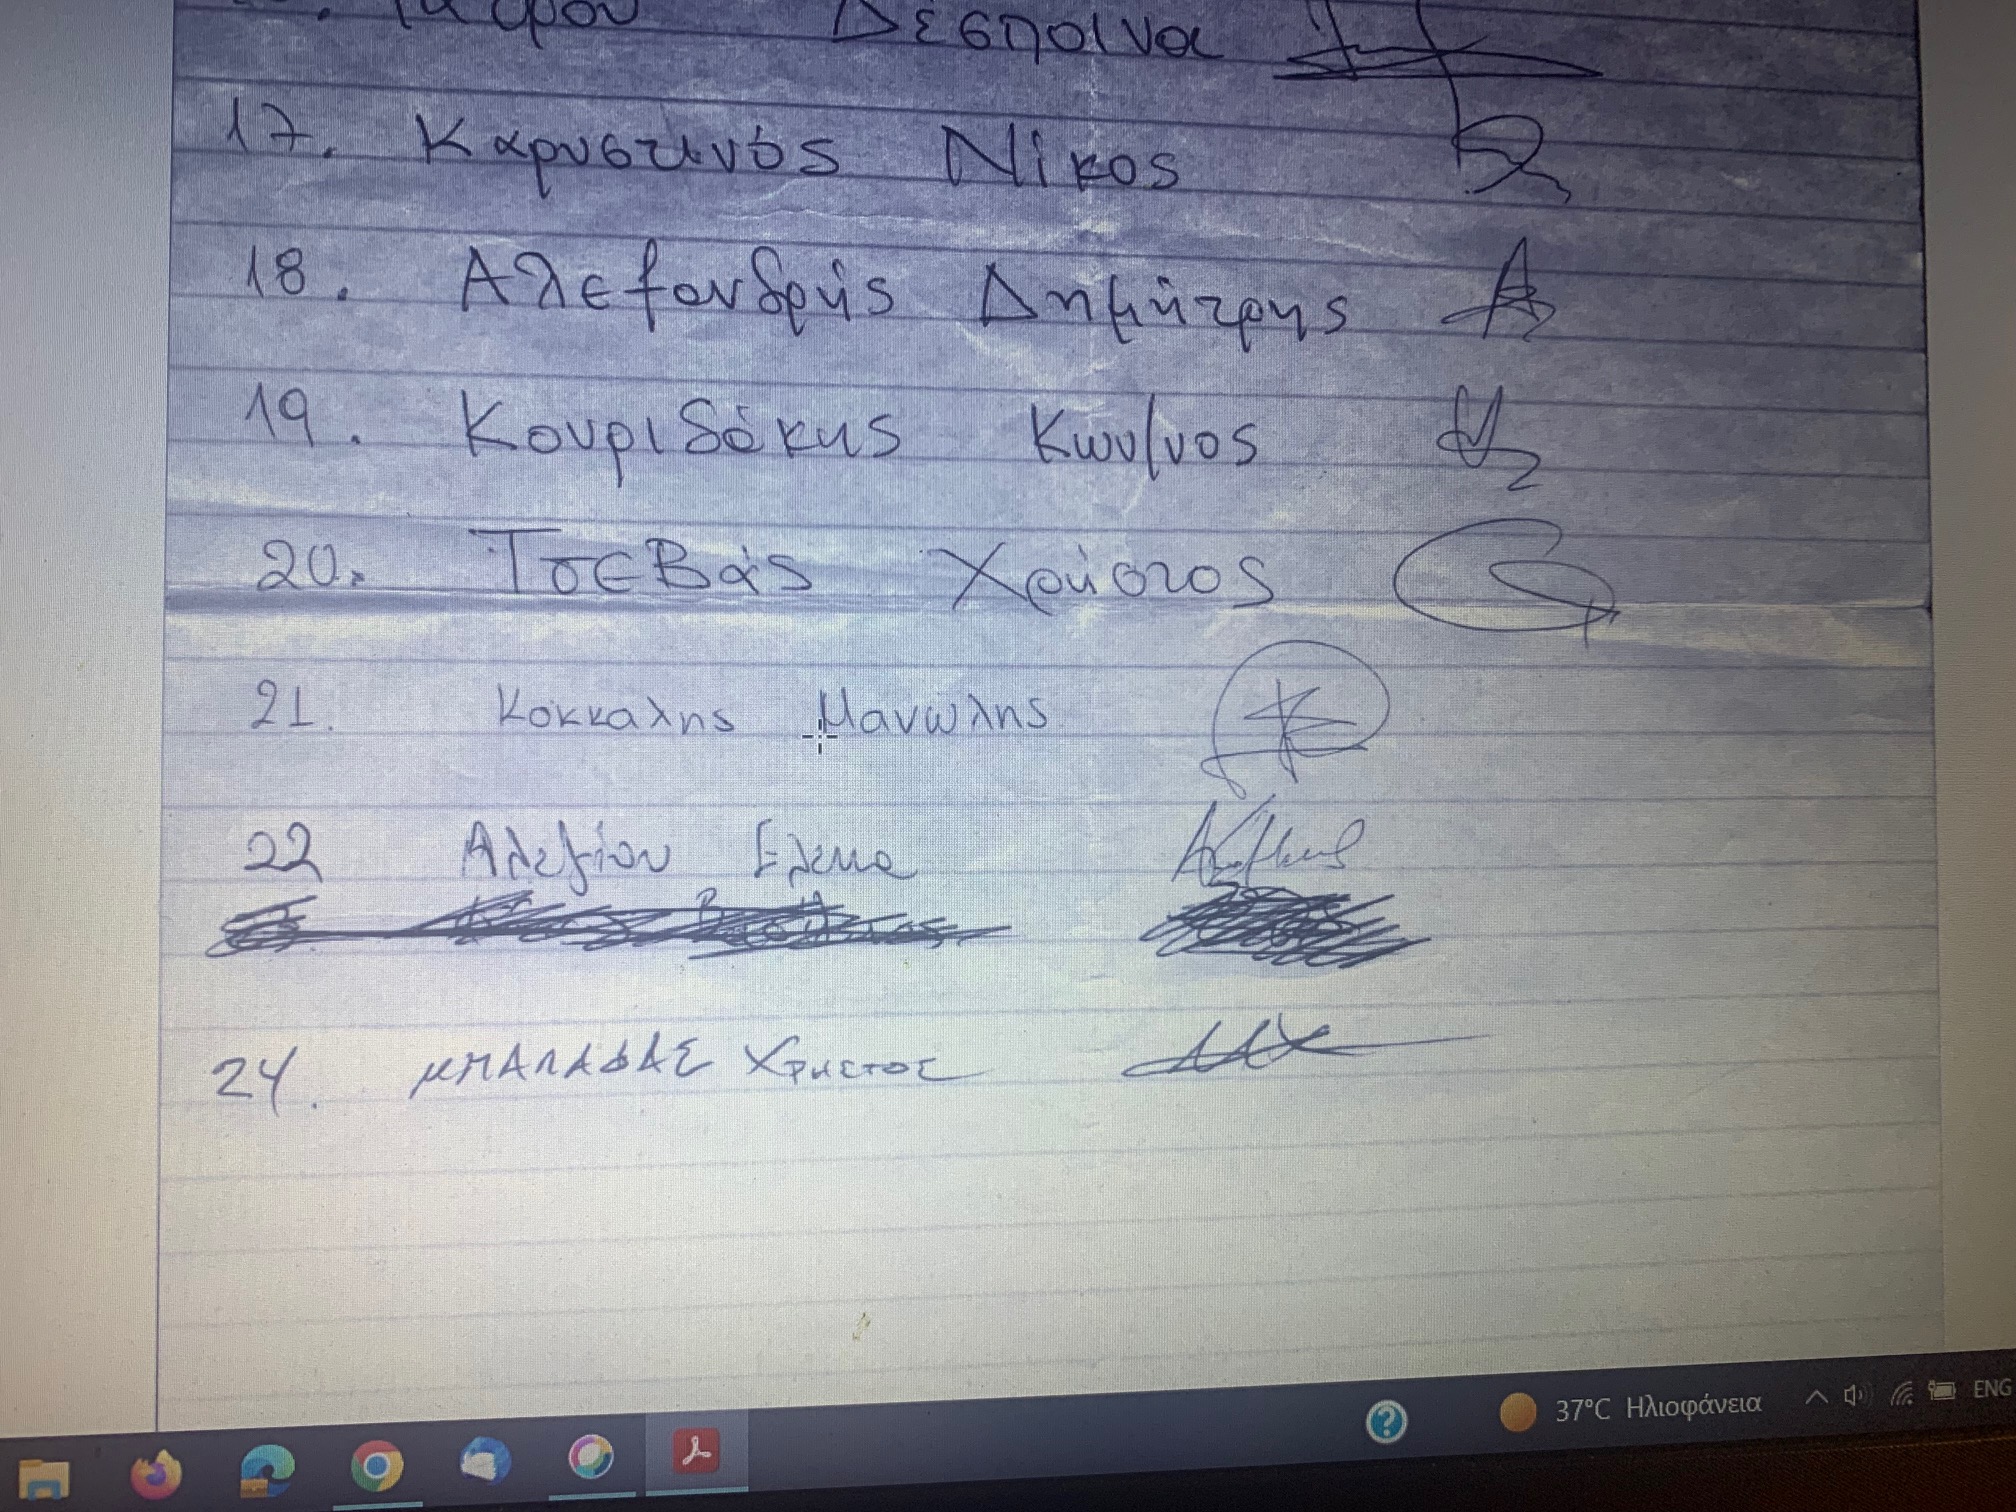 Δέσποινα
17. Καρυστινός Νίκος
18. Αλεξανδρής Δημήτρης
19. Κουριδάκης Κων/νος
20. Τσεβάς Χρήστος
21. Κοκκαλης Μανωλης
22 Αλεξίου Ελενα
24. ΜΠΑΛΑΦΑΣ ΧΡΗΣΤΟΣ
37°C Ηλιοφάνεια ENG